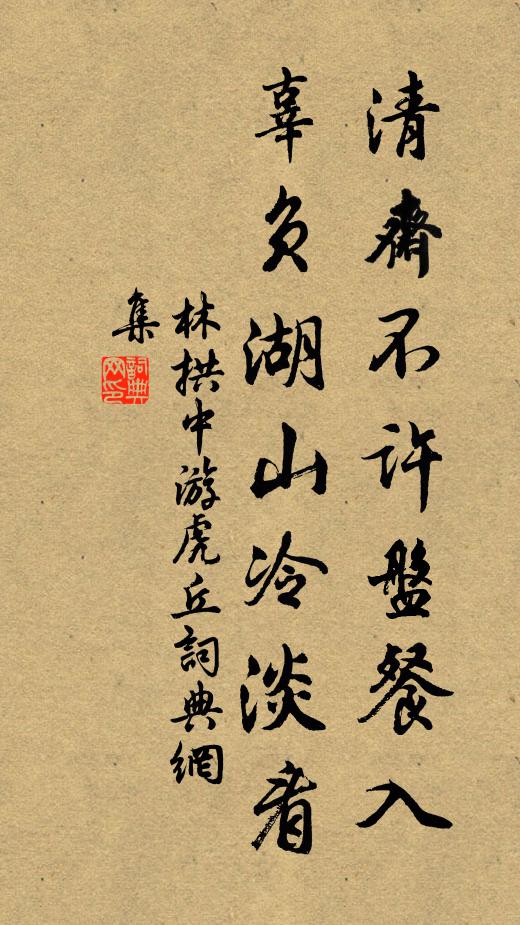 清齋不許盤餐入
辜負湖山冷淡看
林拱中游虎丘詞典網
集
詞典
网印